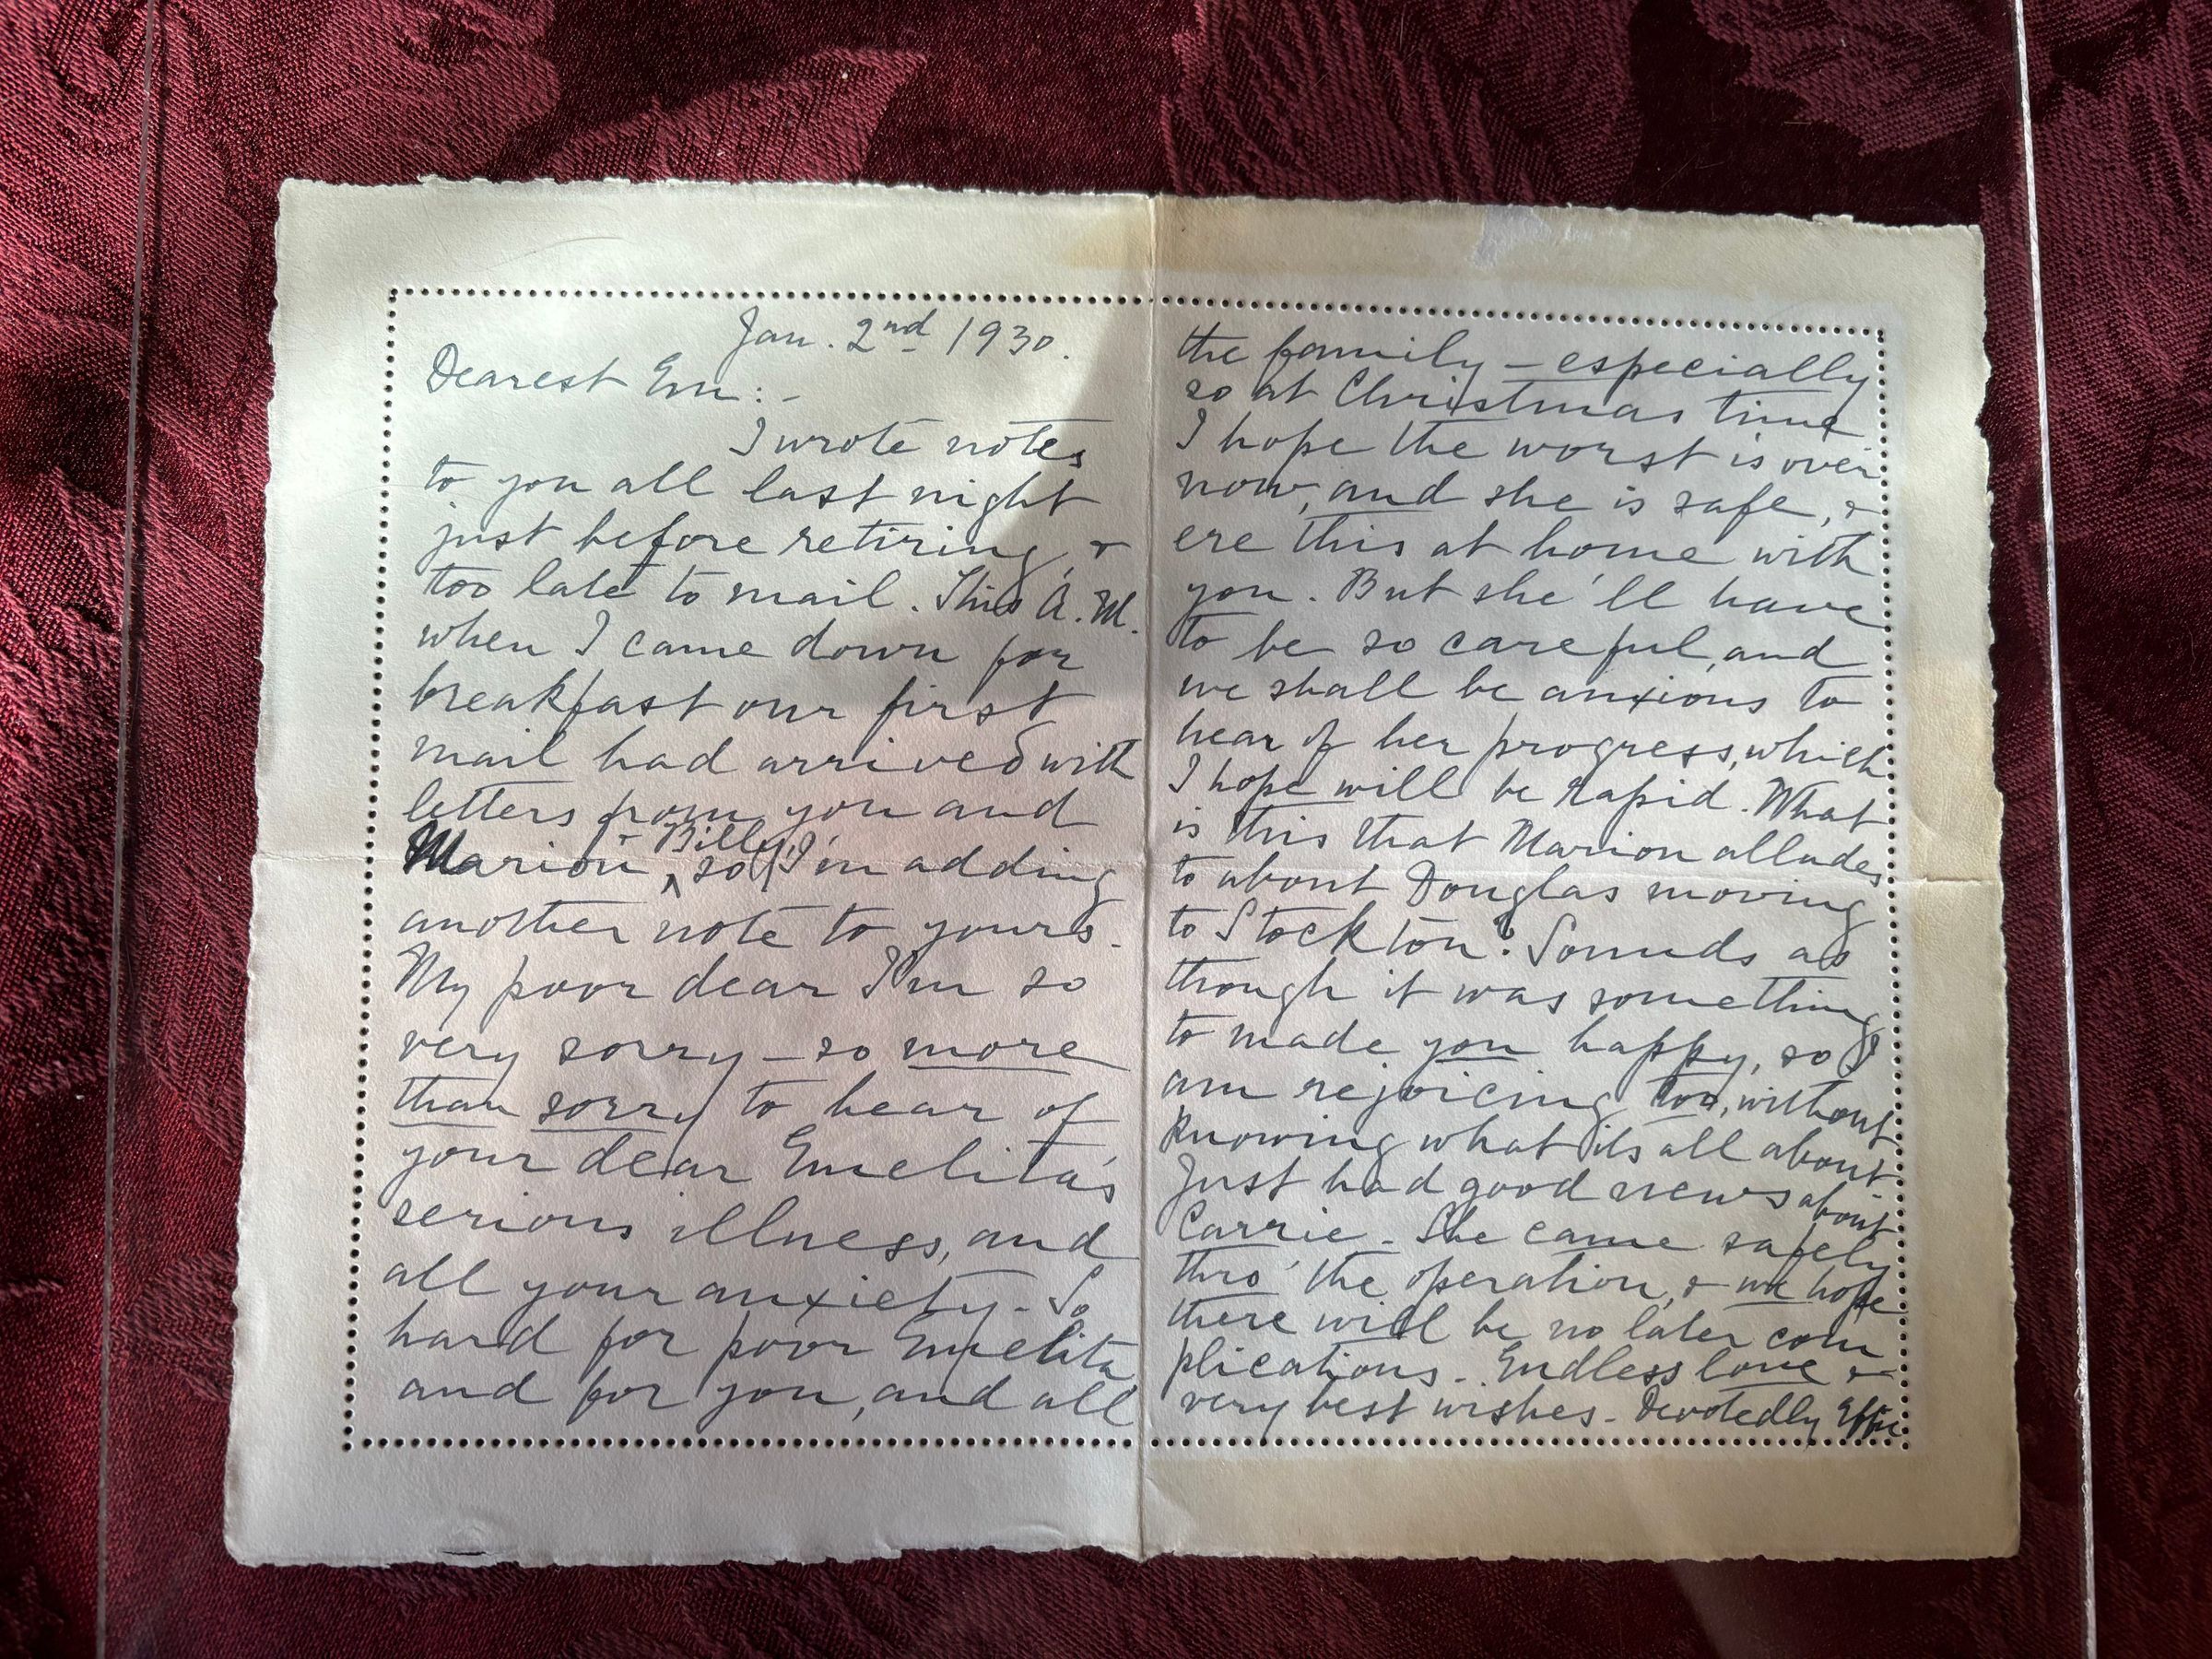 Jan. 2nd 1930.
Dearest Em:-
I wrote notes
to you all last night
just before retiring, &
too late to mail. This A.M.
when I came down for
breakfast our first
mail had arrived with
letters from you and
Marion & Billy, so I'm adding
another note to yours.
My poor dear I'm so
very sorry - so more
than sorry to hear of
your dear Emelita's
serious illness, and
all your anxiety - So
hard for poor Emelita
and for you, and all
the family - especially
so at Christmas time
I hope the worst is over
now, and she is safe, &
ere this at home with
you. But she'll have
to be so careful, and
we shall be anxious to
hear of her progress, which
I hope will be rapid. What
is this that Marion alludes
to about Douglas moving
to Stockton? Sounds as
though it was something
to made you happy, so I
am rejoicing too, without
knowing what its all about
Just had good news about
Carrie - She came safely
thro' the operation, & we hope
there will be no later com
plications - Endless love &
very best wishes - Devotedly Effie